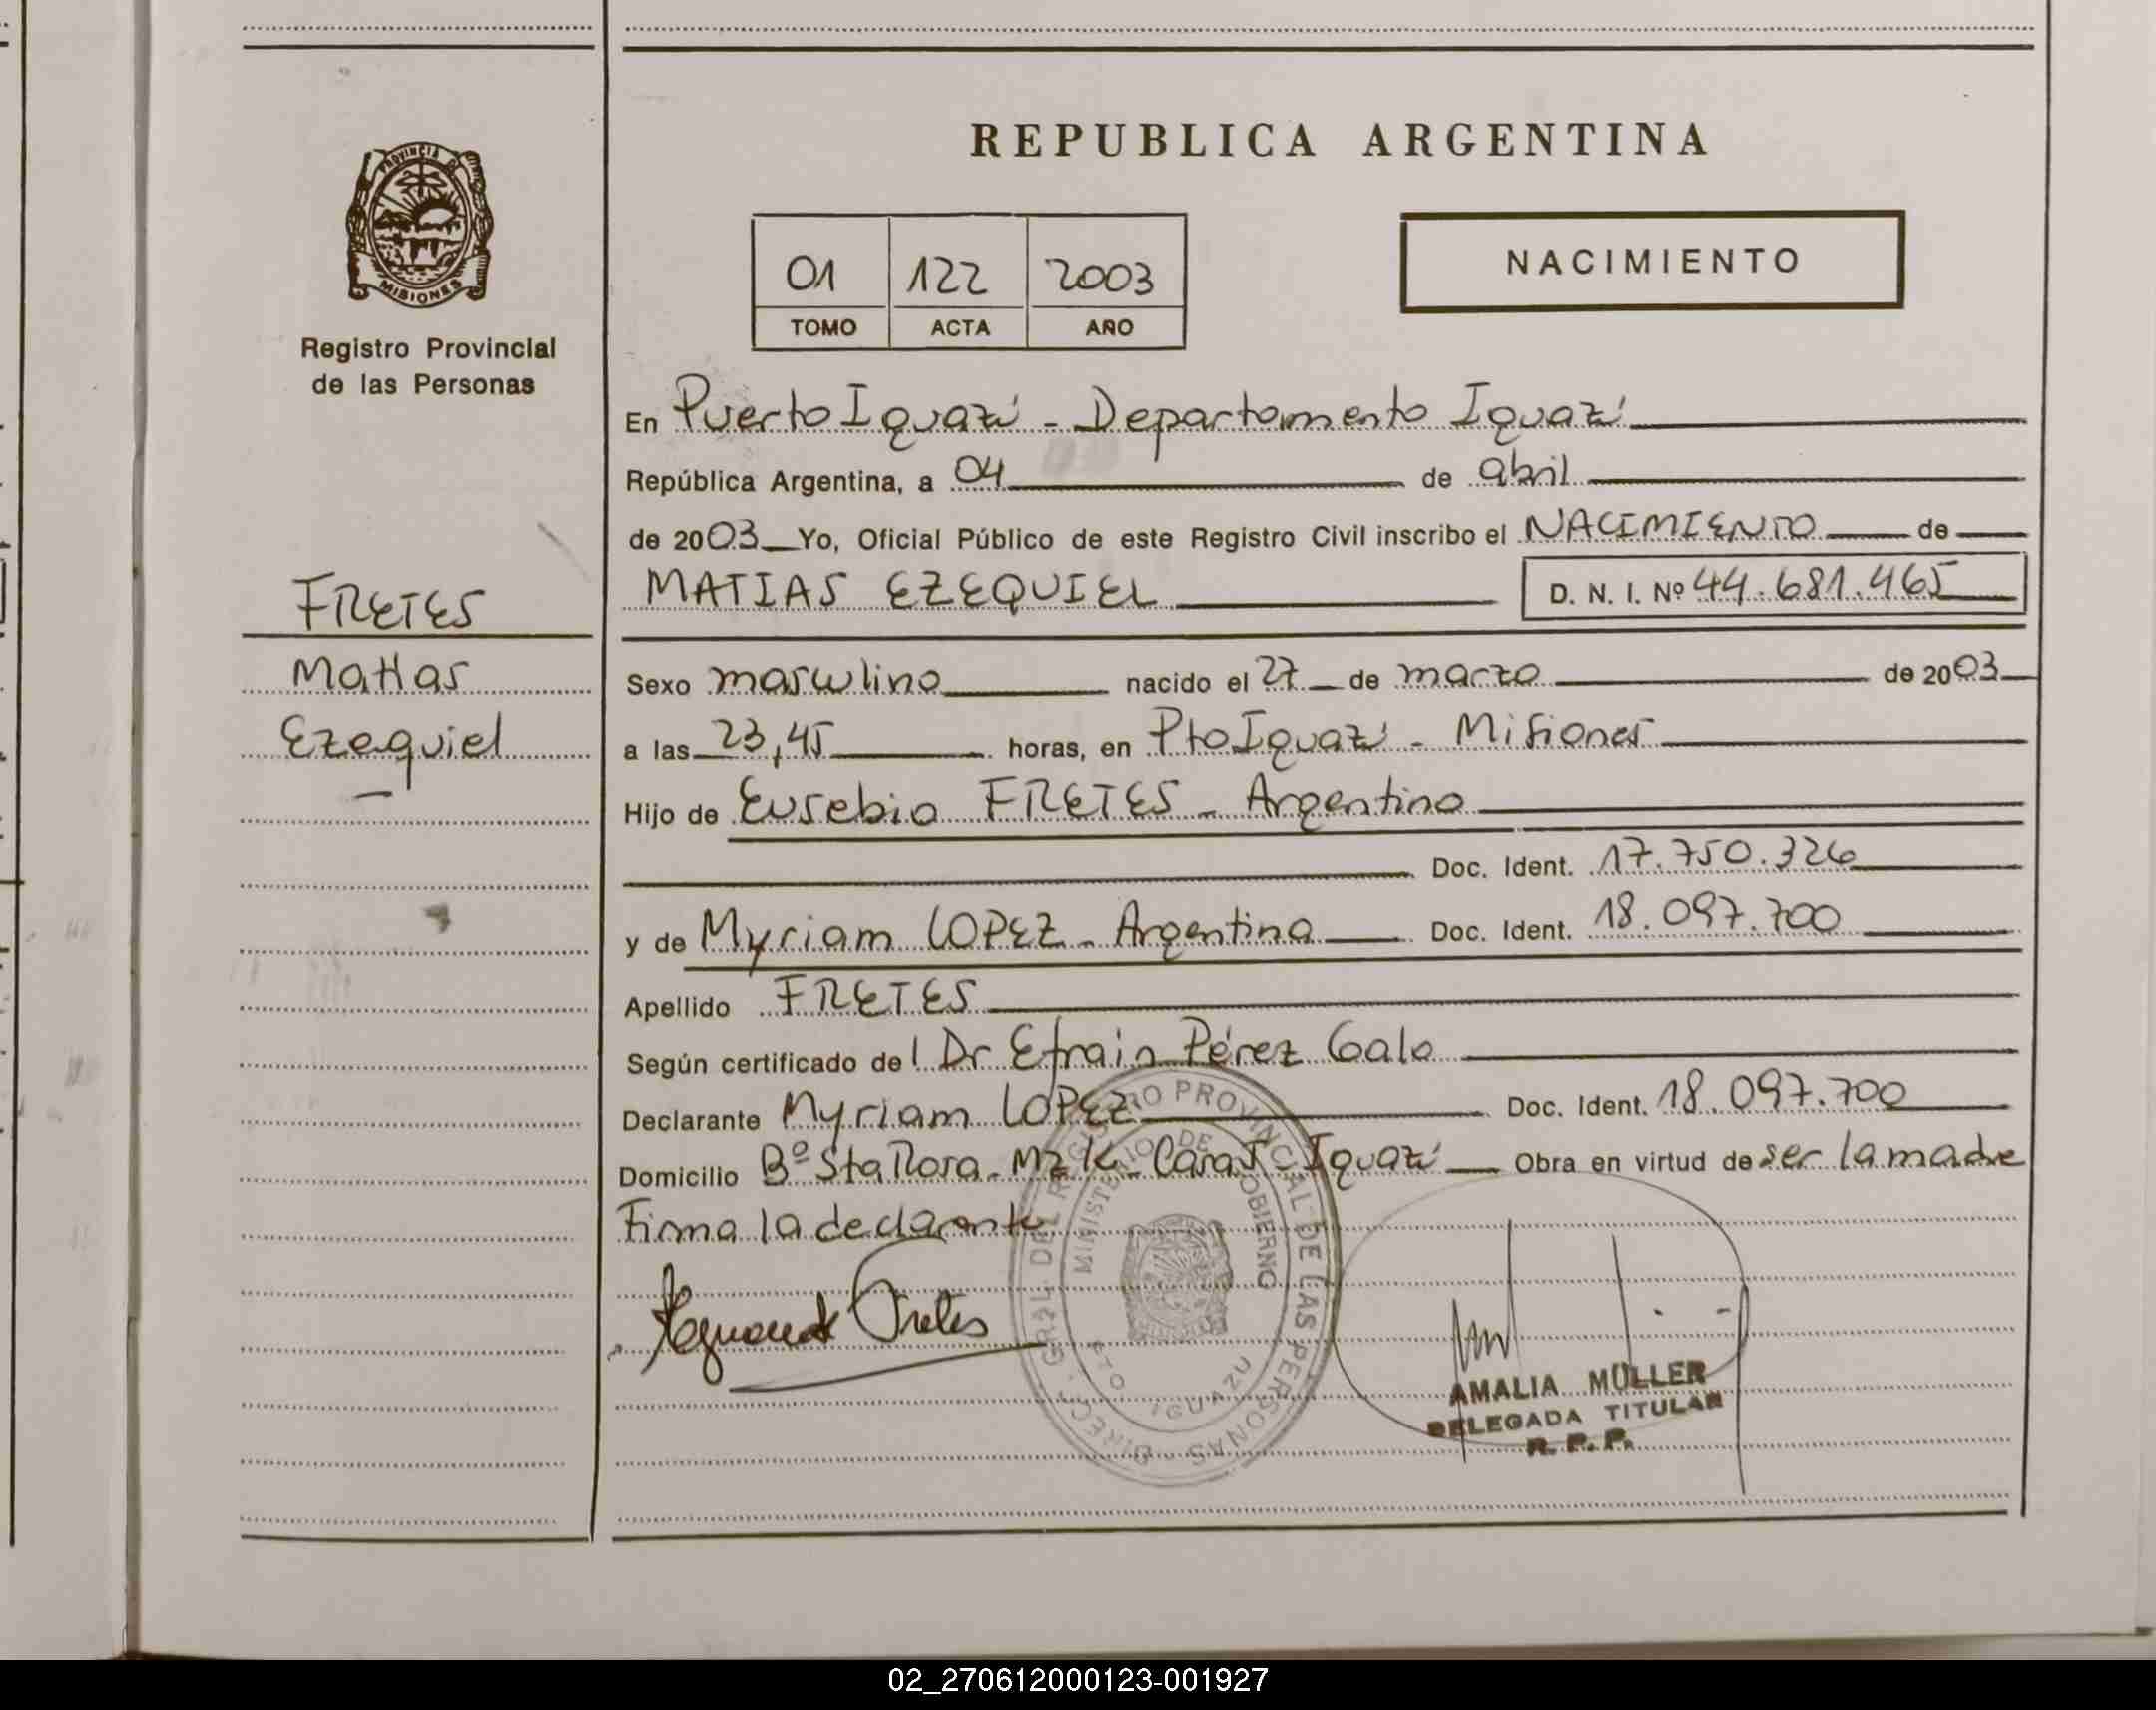 REPUBLICA ARGENTINA
PROVINCIA DE
MISIONES
Registro Provincial
de las Personas
01 122 2003
TOMO ACTA AÑO
NACIMIENTO
En Puerto Iguazú - Departamento Iguazú
República Argentina, a 04 de abril
de 2003 Yo, Oficial Público de este Registro Civil inscribo el NACIMIENTO de
MATIAS EZEQUIEL D. N. I. Nº 44.681.465
FRETES
Matias
Ezequiel
Sexo masculino nacido el 27 de marzo de 2003
a las 23,45 horas, en Pto Iguazú - Misiones
Hijo de Eusebio FRETES - Argentino
Doc. Ident. 17.750.326
y de Myriam LOPEZ - Argentina Doc. Ident. 18.097.700
Apellido FRETES
Según certificado del Dr Efrain Pérez Galo
Declarante Myriam LOPEZ Doc. Ident. 18.097.700
Domicilio Bº Sta Rosa - Mz K - Casa - Iguazú Obra en virtud de ser la madre
Firma la declarante
Fretes
DIRECC. GRAL. DEL REGISTRO PROVINCIAL DE LAS PERSONAS
MINISTERIO DE GOBIERNO
PTO. IGUAZU
AMALIA MÜLLER
DELEGADA TITULAR
R. P. P.
02_270612000123-001927